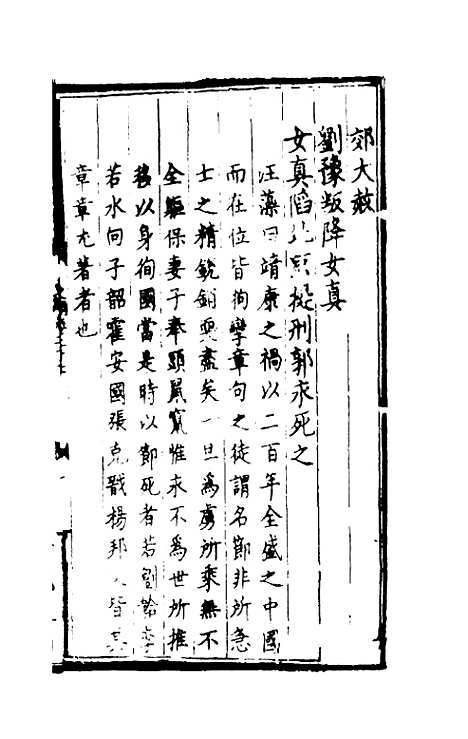 郊大赦
劉豫叛降女真
女真陷提刑郭永死之
汪藻曰靖康之禍以二百年全盛之中國
而在位皆徇孿章句之徒謂名節非所急
士之精銳銷耎盡矣一旦為虜所乘無不
全軀保妻子奉頭鼠竄惟求不為世所推
以身徇國當是時以節死者若劉韐李
若水向子韶霍安國張克戩楊邦乂皆其
章章尤著者也